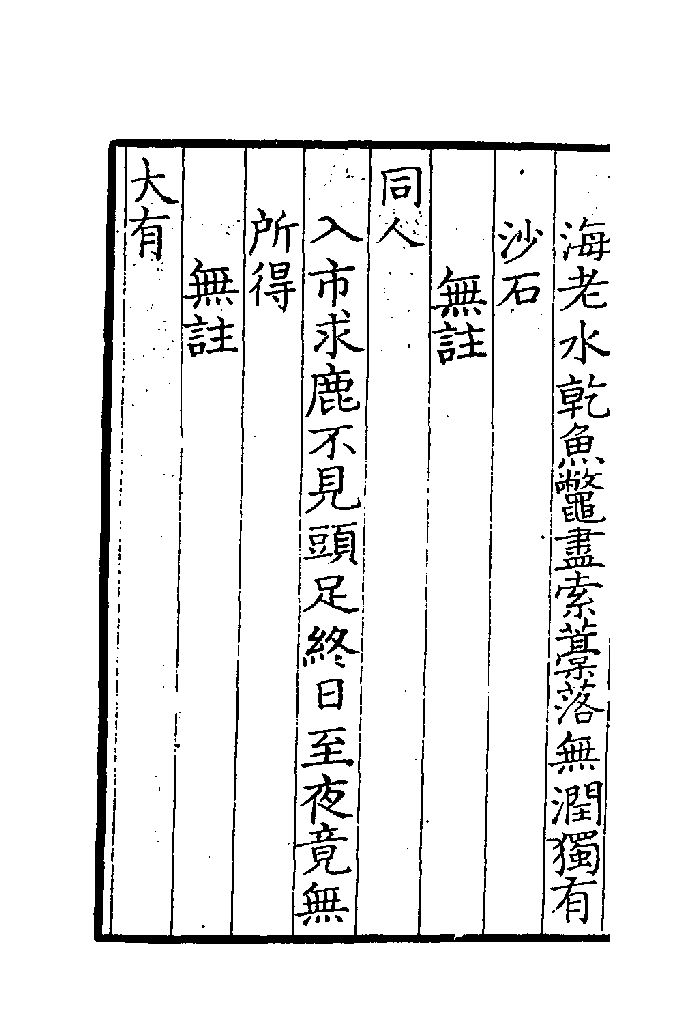 海老水乾魚鼈盡索藁落無潤獨有
沙石
無註
同人
入市求鹿不見頭足終日至夜竟無
所得
無註
大有